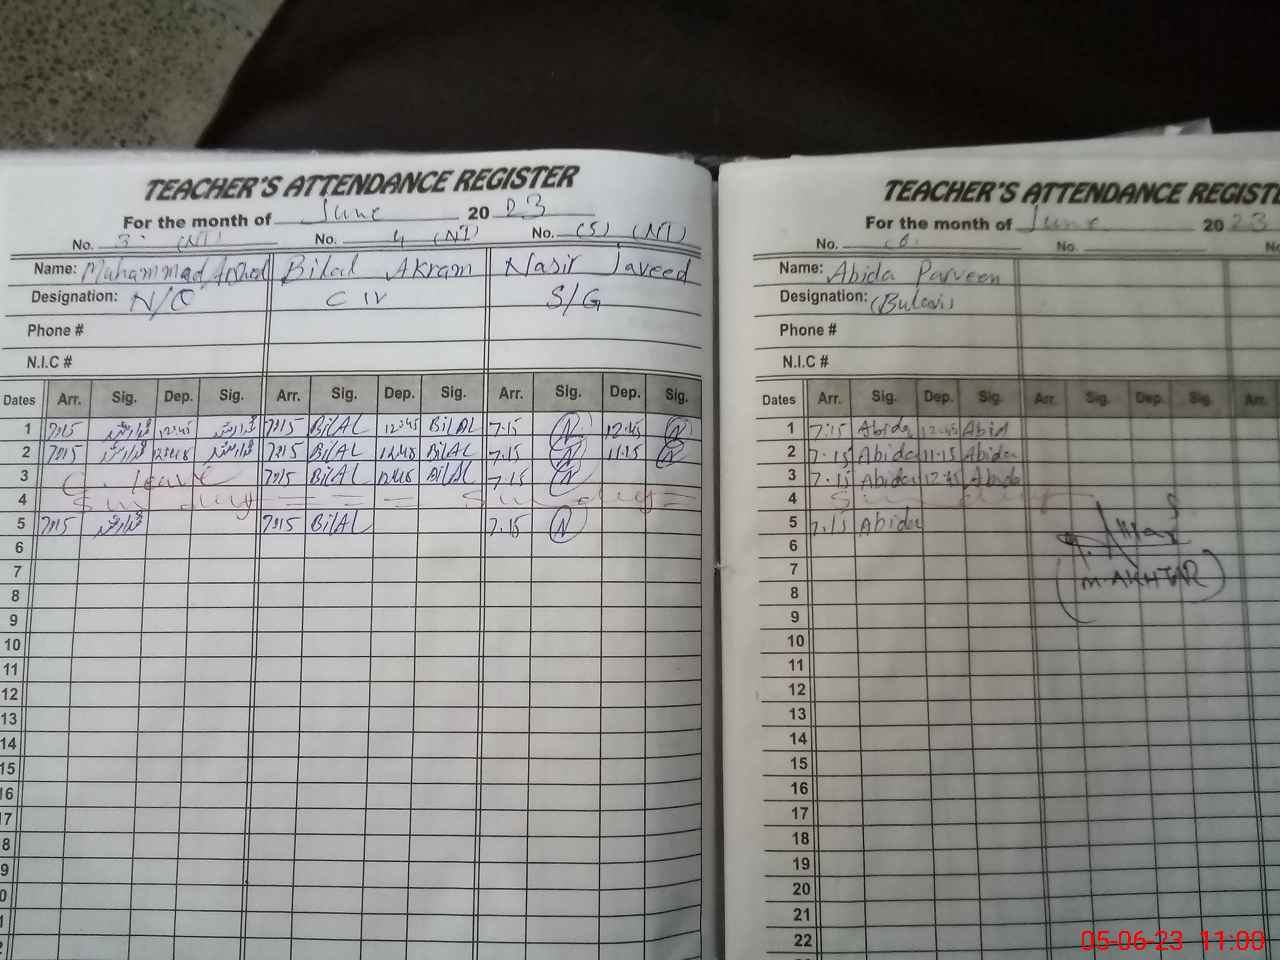 TEACHER'S ATTENDANCE REGISTER
For the month of June 2023
No. 3. (NT) No. 4 (NT) No. (5) (NT)
Name: Muhammad Arshad Bilal Akram Nasir Javeed
Designation: N/Q C IV S/G
Phone #
N.I.C #
Dates Arr. Sig. Dep. Sig. Arr. Sig. Dep. Sig. Arr. Sig. Dep. Sig.
1 7:15 12:45 7:15 BilAL 12:45 BilAL 7.15 N 12:45 N
2 7:15 7:15 BilAL BilAL 7.15 N 11:15 N
3 C. leave 7:15 BilAL BilAL 7.15 N
4 Sunday = = = = Sunday =
5 7:15 7:15 BilAL 7.15 N
6
7
8
9
10
11
12
13
14
15
16
17
8
9
0
1
2
TEACHER'S ATTENDANCE REGISTE
For the month of June 2023
No. (6) No. No
Name: Abida Parveen
Designation:
Phone #
N.I.C #
Dates Arr. Sig. Dep. Sig. Arr. Sig. Dep. Sig. Arr.
1 7:15 Abida 12:45 Abid
2 7.15 Abida 11:15 Abida
3 7.15 Abida 12:45 Abida
4 Sunday
5 7:15 Abida
6
7 (M.AKHTAR)
8
9
10
11
12
13
14
15
16
17
18
19
20
21
22
05-06-23 11:00